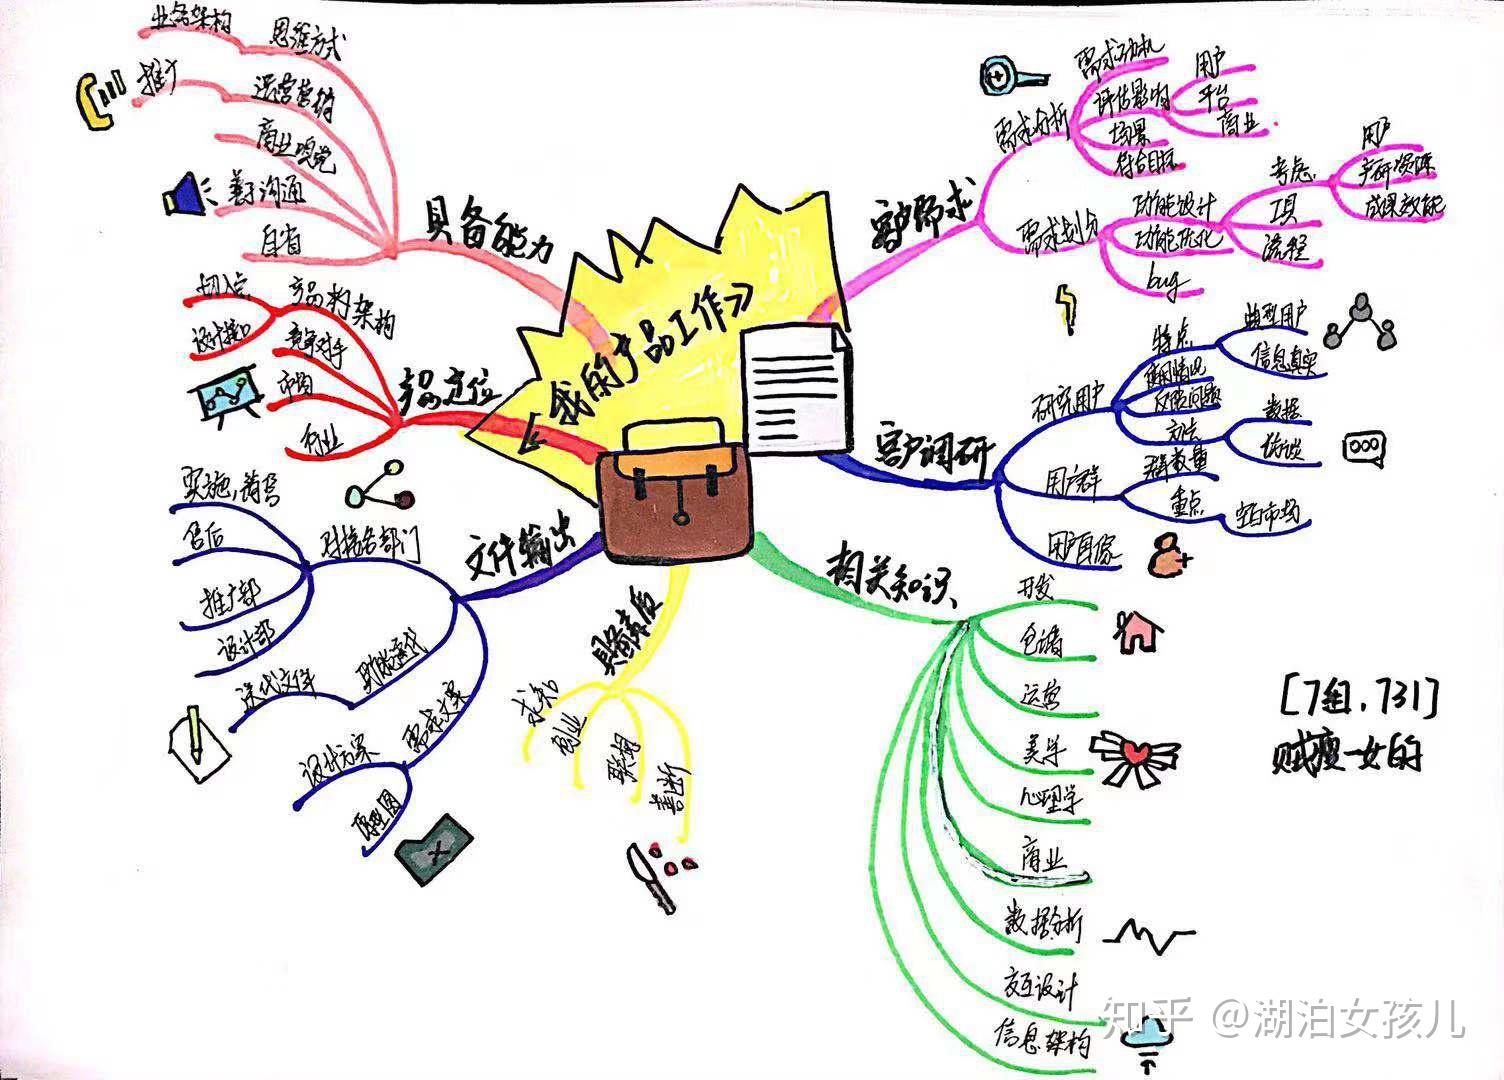 《我的产品工作》
客户需求
需求分析
需求动机
评估影响
用户
平台
商业
场景
符合目标
需求划分
功能设计
功能优化
考虑
用户
产研资源
成果效能
工具
流程
bug
客户调研
研究用户
特点
典型用户
信息真实
使用情况
反馈问题
方法
数据
访谈
用户群
群数量
重点
空白市场
用户画像
相关知识
开发
仓储
运营
美学
心理学
商业
数据分析
交互设计
信息架构
具备素质
求知
创业
联想
善讲
文件输出
对接各部门
实施,销售
售后
推广部
设计部
功能迭代
迭代文件
需求文案
设计方案
原型图
产品定位
产品构架构
切入点
设计接口
竞争对手
市场
行业
具备能力
思维方式
业务架构
运营营销
推广
商业嗅觉
善于沟通
自省
[7组,731]
贼瘦一女的
知乎 @湖泊女孩儿